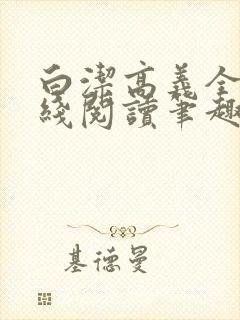 白潔高義全
綫閱讀筆趣
基德曼